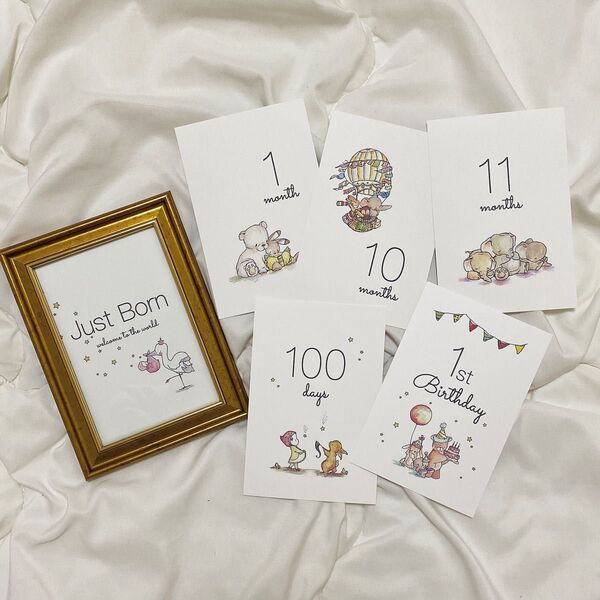 Just Born
welcome to the world
1
month
10
months
11
months
100
days
1st
Birthday